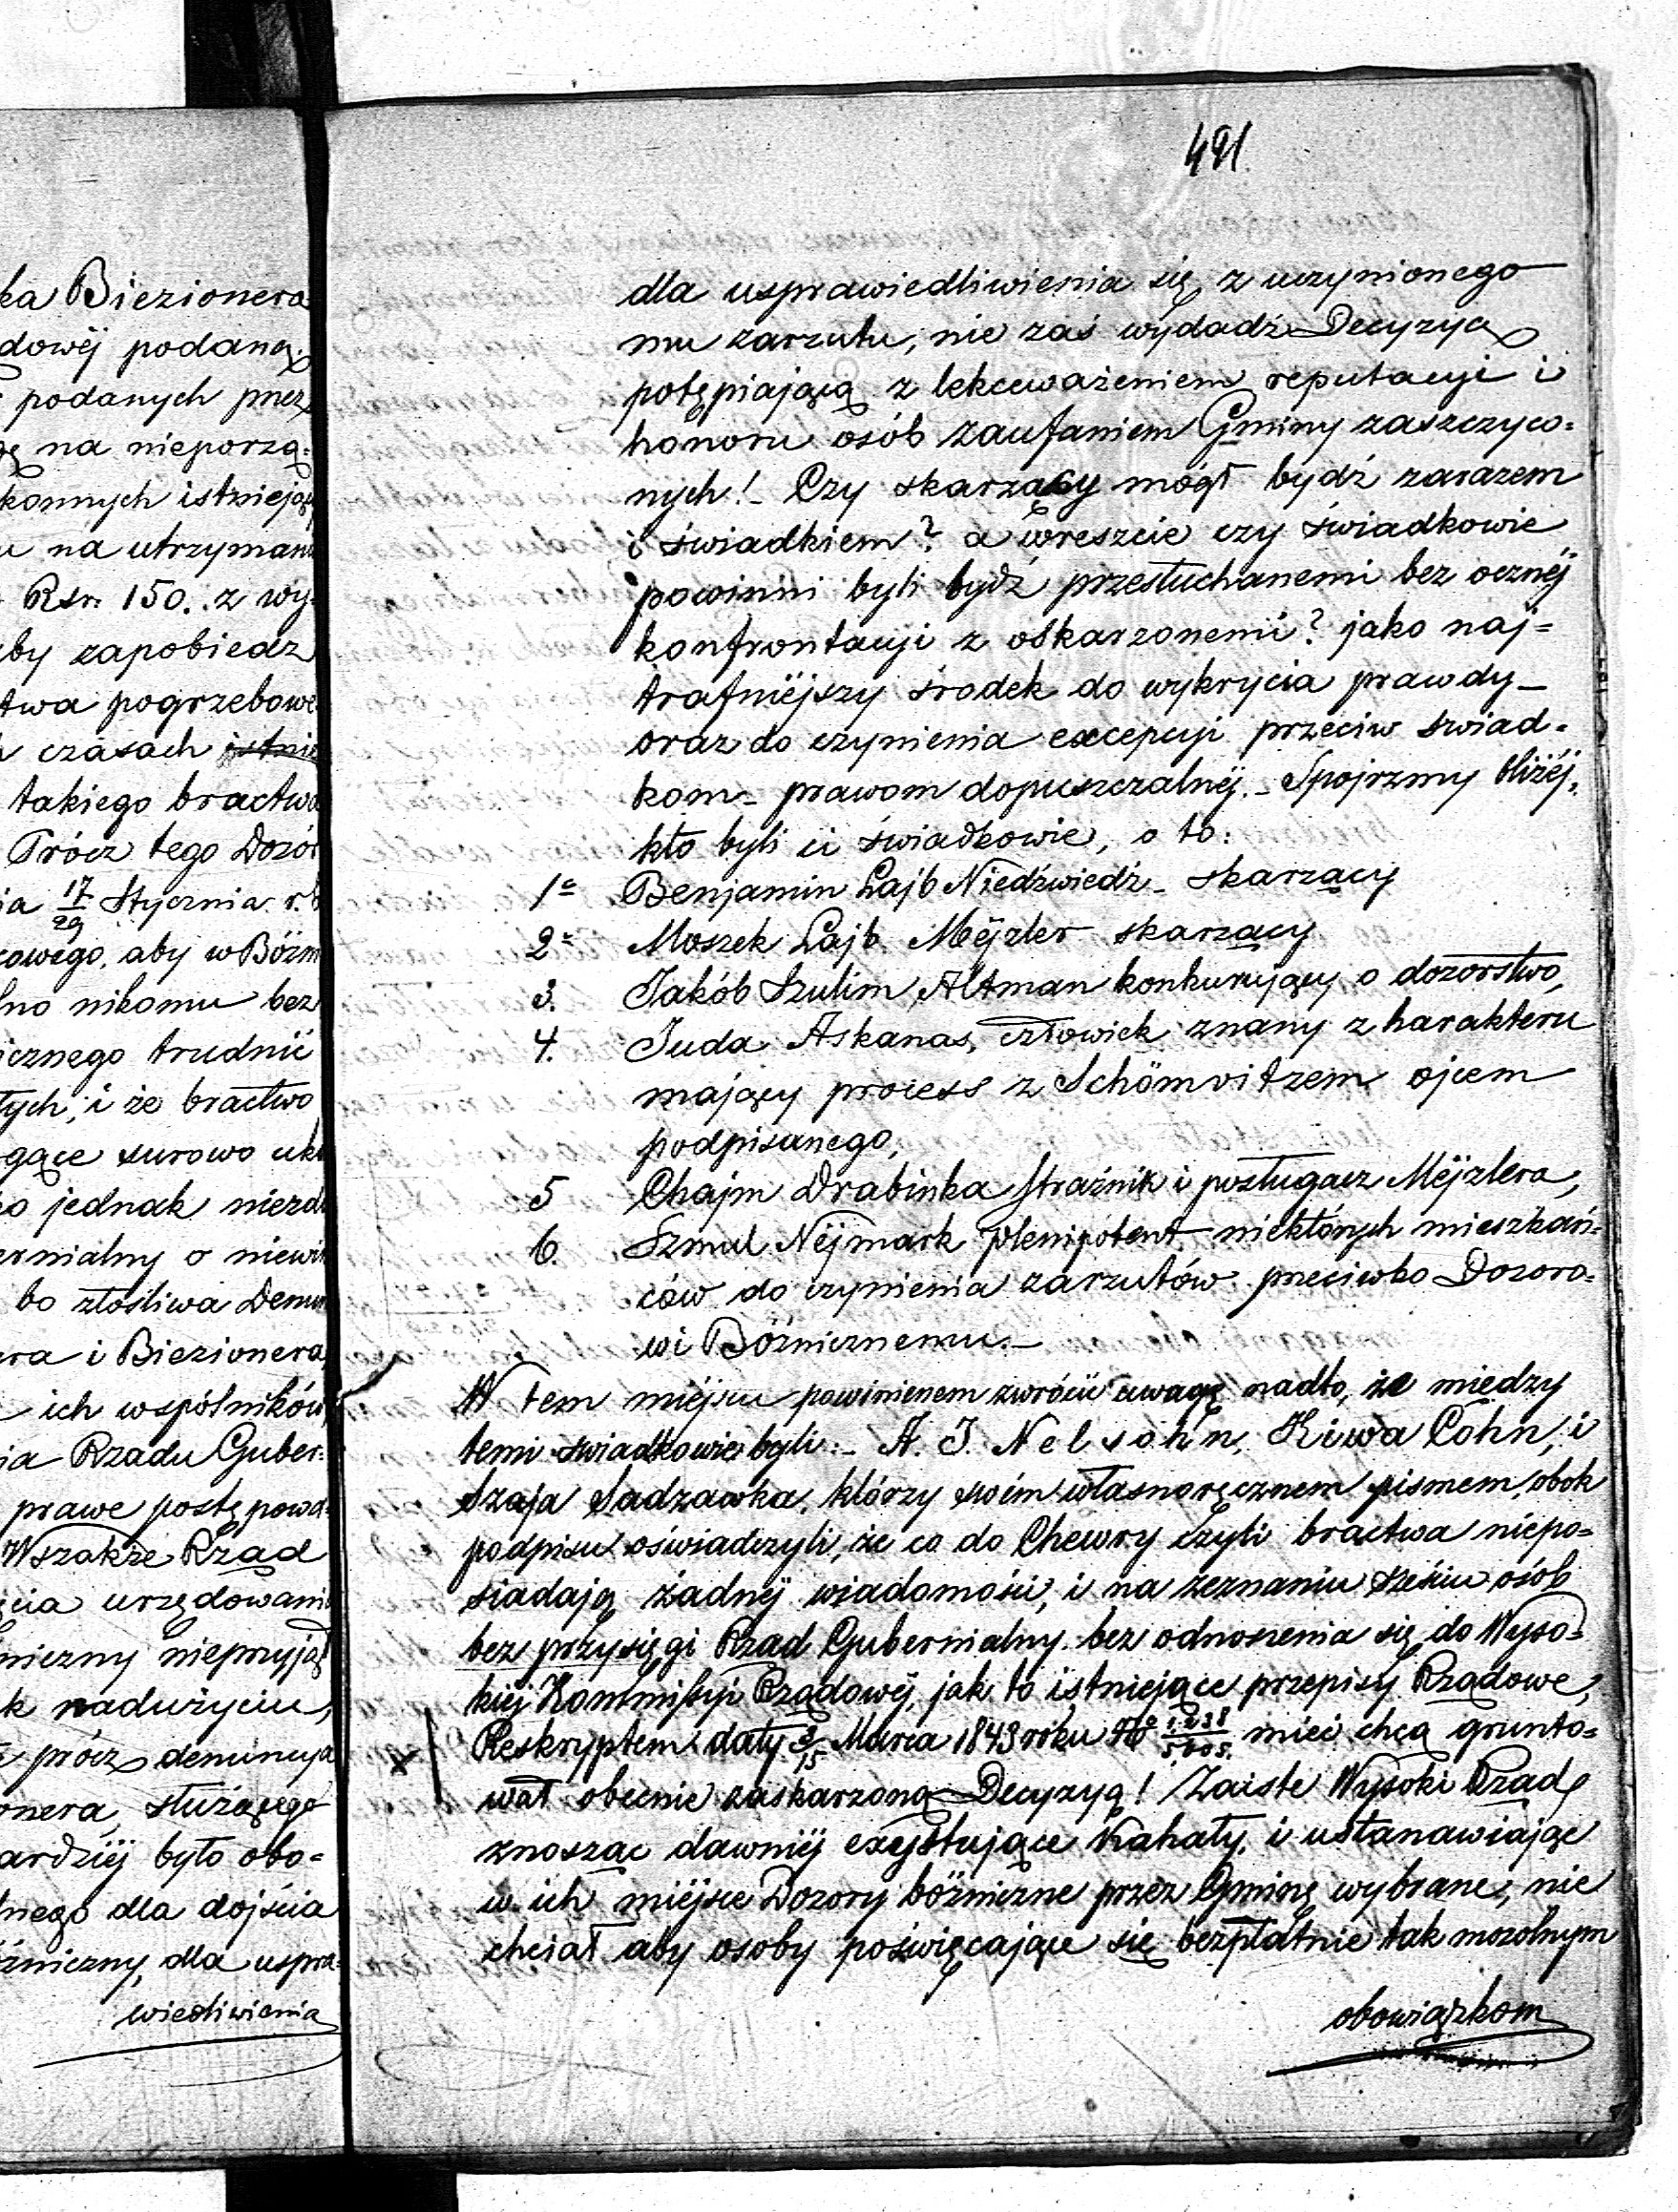 ka Biezionera
dowéj podaną.
podanych przez
na nieporzą=
konnych istnieją
na utrzymani
Rsr. 150. z wy
by zapobiedz
twa pogrzebowe
czasach istnie
takiego bractwa
Prócz tego Dozór
ia 17/29 Stycznia r. b
cowego, aby w Bóżn
lno nikomu bez
icznego trudnić
tych, i że bractwo
gące surowo uk
o jednak niezd
ernialny o niewi
bo złośliwa Denun
ra i Biezionera,
ich wspólników
ia Rządu Guber=
prawe postępowa=
Wszakże Rząd
cia urzędowani
niczny nieprzyją
k nadużyciu,
prócz denuncya
onera, służącego
ardziéj było obo=
nego dla dojścia
źniczny, dla uspra=
wiedliwienia
491.
dla usprawiedliwienia się z uczynionego
mu zarzutu, nie zaś wydadź Decyzyą
potępiającą z lekceważeniem reputacyi i
honoru osób zaufaniem Gminy zaszczyco=
nych! – Czy skarzący mógł bydź zarazem
i świadkiem? a wreszcie czy świadkowie
powinni byli bydź przesłuchanemi bez ocznéj
konfrontacyi z oskarzonemi? jako naj=
trafniéjszy środek do wykrycia prawdy –
oraz do czynienia excepcyi przeciw swiad=
kom – prawom dopuszczalnéj. – Spojrzmy bliżéj,
kto byli ci świadkowie, o to:
1e Benjamin Lajb Niedźwiedź – skarzący
2e Moszek Lajb Méjzler skarzący
3. Jakób Szulim Altman konkurujący o dozorstwo,
4. Juda Askanas, człowiek znany z harakteru
mający process z Schömvitzem ojcem
podpisanego,
5 Chajm Drabinka strażnik i posługacz Méjzlera,
6. Szmul Néjmark plenipotent niektórych mieszkań=
ców do czynienia zarzutów przeciwko Dozoro=
wi Bóżnicznemu. –
W tem miéjscu powinienem zwrócić uwagę nadto, że miedzy
temi swiadkowie byli: – A. J. Nelsohn, Kiwa Cohn, i
Szaja Sadzawka, którzy swém własnoręcznem pismem, obok
podpisu oświadczyli, że co do Chewry czyli bractwa niepo=
siadają żadnéj wiadomości, i na zeznaniu sześciu osób
bez przysięgi Rząd Gubernialny bez odnoszenia się do Wyso=
kiéj Kommissyi Rządowéj, jak to istniejące przepisy Rządowe,
Reskryptem daty 3/15 Marca 1843 roku No 1238/5605. mieć chcą grunto=
wał obecnie zaskarzoną Decyzyą! Zaiste Wysoki Rząd
znosząc dawniéj exystujące Kahały, i ustanawiając
w ich miéjsce Dozory bóżniczne przez Gminę wybrane, nie
chciał aby osoby poświęcające się bezpłatnie tak mozolnym
obowiązkom